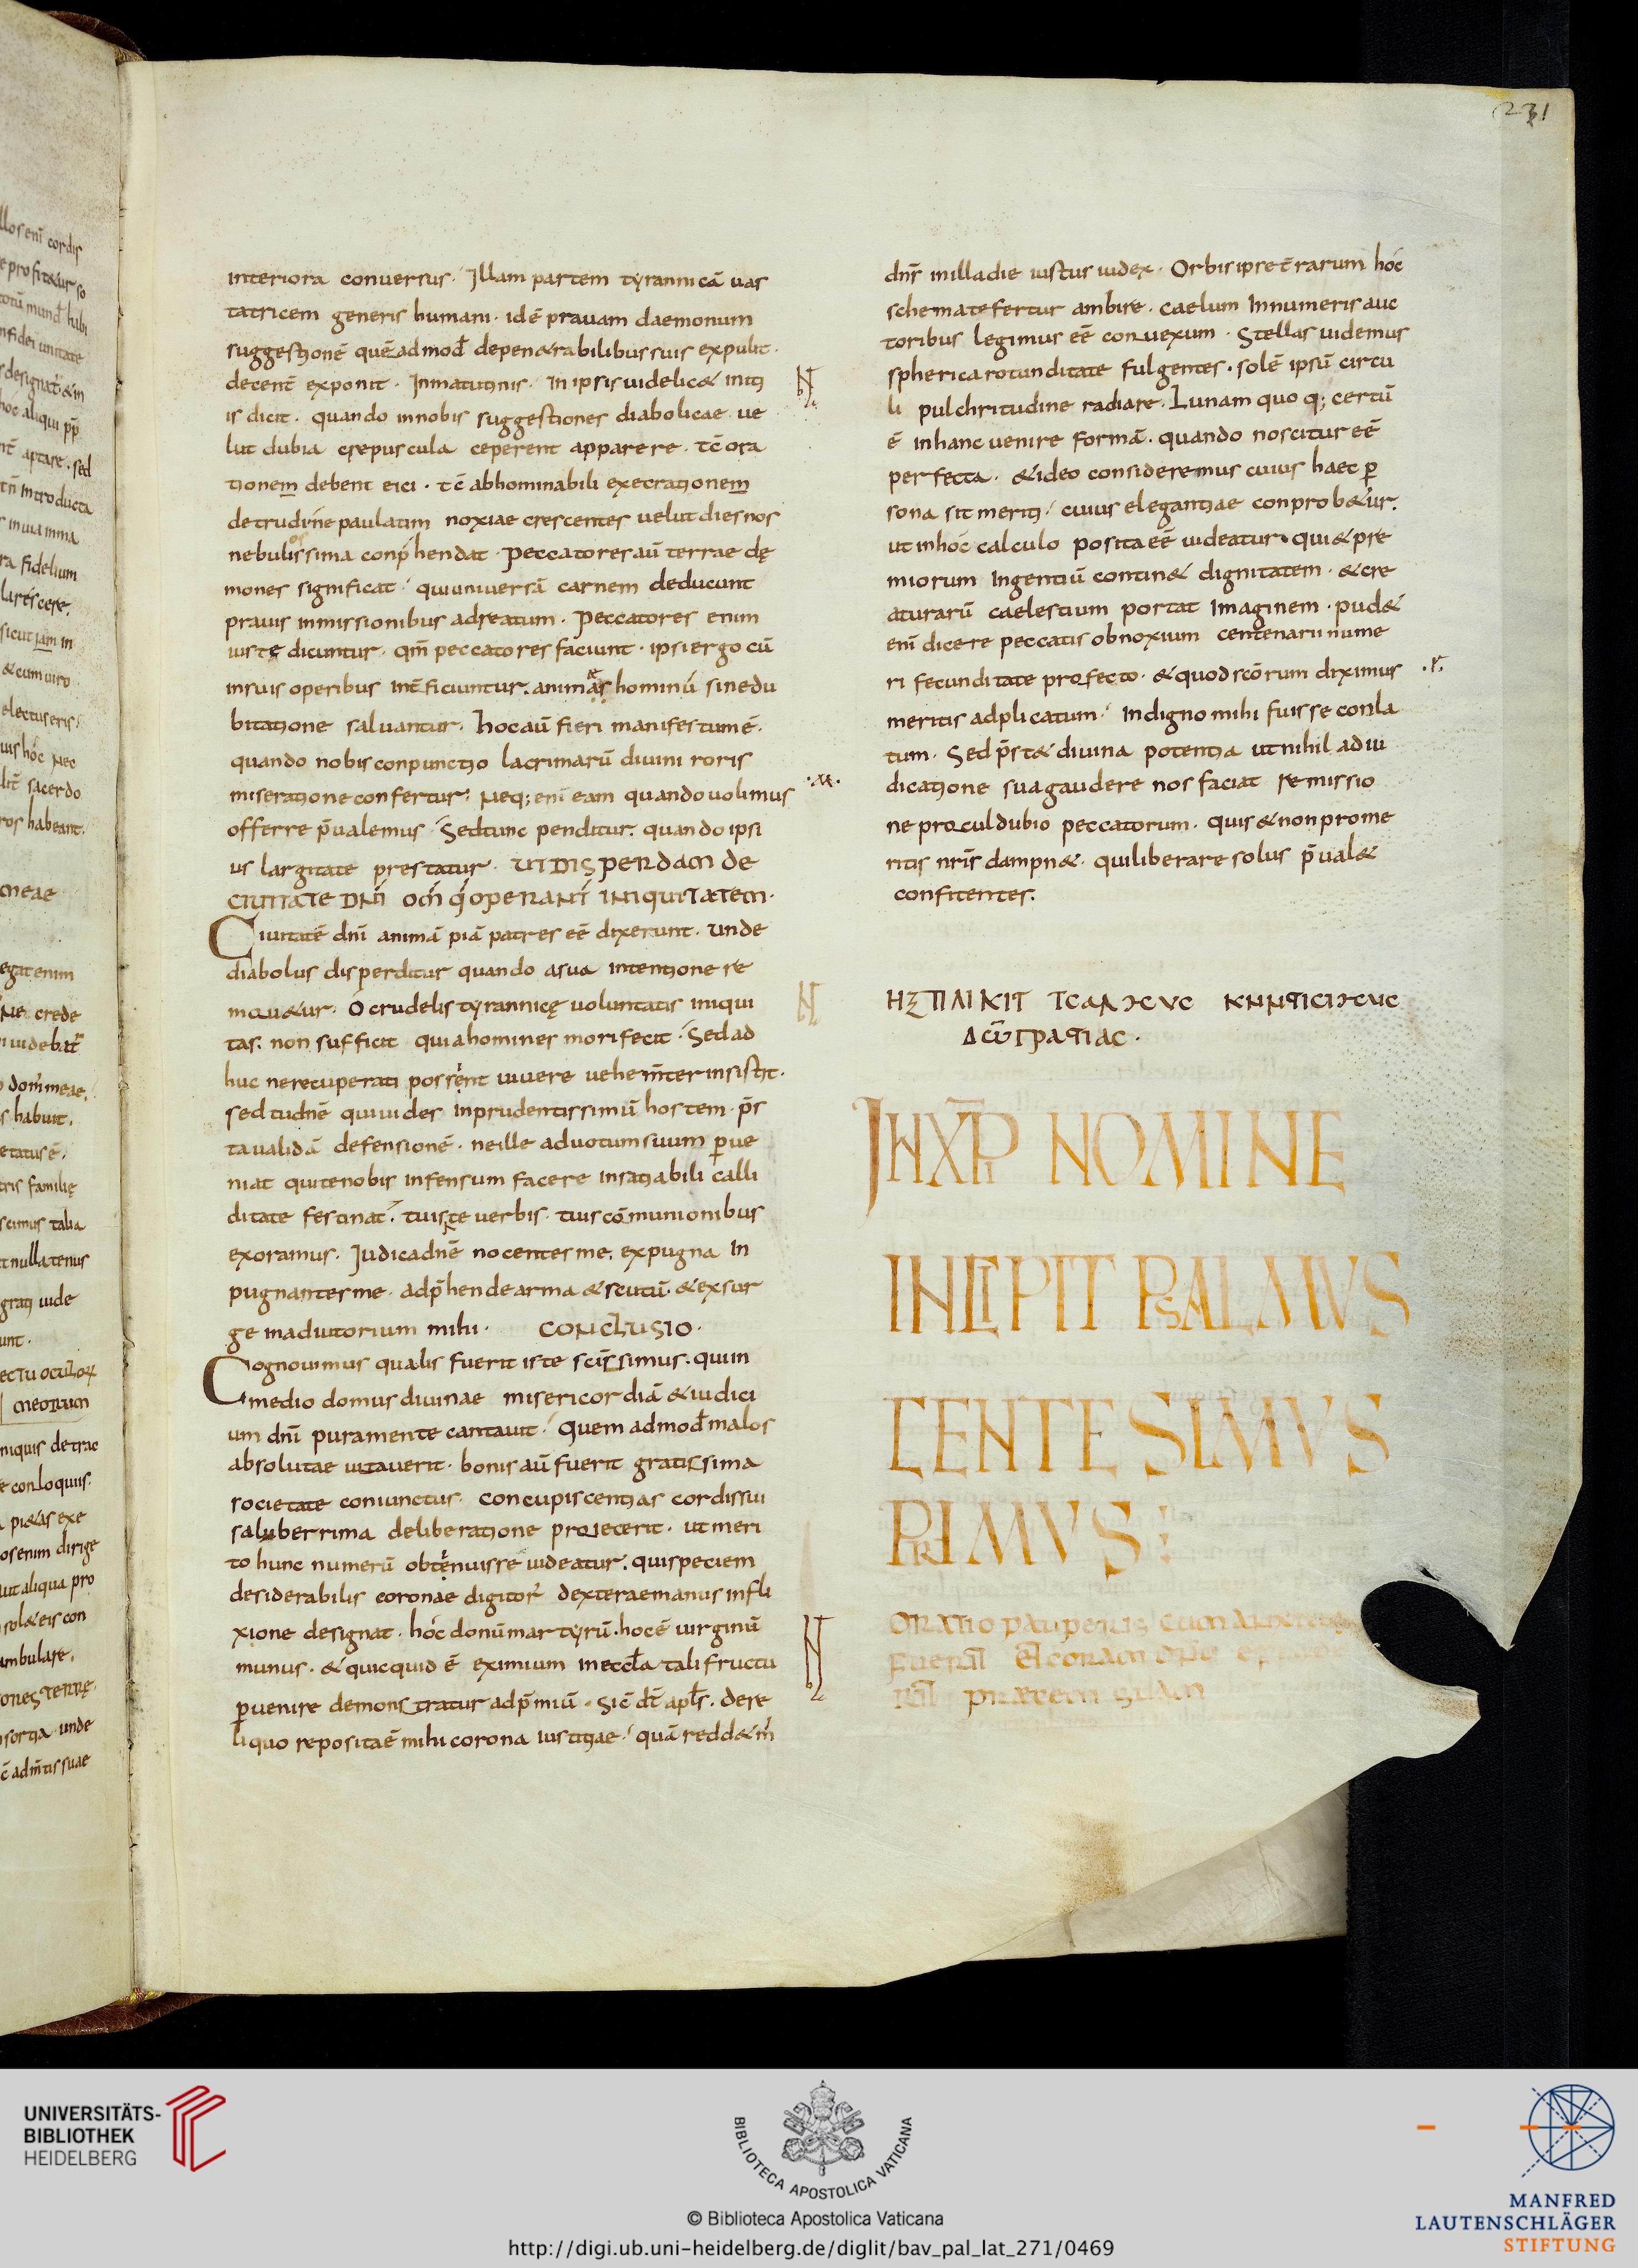 231
interiora conuersus. Illam partem tyrannicā uas
tatricem generis humani. idē prauam daemonum
suggestionē quēadmod̄ depen&rabilibus suis expulit.
decent̄ exponit. Inmatutinis. In ipsis uidelic& initi
is dicit. quando innobis suggestiones diabolicae. ue
lut dubia crepuscula ceperent apparere. tc̄ ora
tionem debent eici. tc̄ abhominabili execrationem
detrudine paulatim noxiae crescentes uelut dies nos
nebulissima conp̄hendat. Peccatores aū terrae dę
mones significat. qui uniuersā carnem deducunt
prauis inmissionibus adreatum. Peccatores enim
iuste dicuntur. qm̄ peccatores faciunt. ipsi ergo cū
insuis operibus int̄ficiuntur. animas hominū sinedu
bitatione saluantur. hoc aū fieri manifestum ē.
quando nobis conpunctio lacrimarū diuini roris
miseratione confertur. Neq; eni eam quando uolimus
offerre p̄ualemus. Sed tunc penditur. quando ipsi
us largitate prestatur. UT DISPERDAM DE
CIUITATE DN̄I OM̄S Q̄ OPERANT̄ INIQUITATEM.
Ciuitatē dn̄i animā piā patres eē dixerunt. unde
diabolus disperditur quando asua intentione re
mou&ur. O crudelis tyrannicę uoluntatis iniqui
tas. non sufficit quia homines mori fecit. Sed ad
huc ne recuperati possent uiuere uehem̄ter insistit.
sed tu dn̄e qui uides inprudentissimū hostem. p̄s
ta ualidā defensionē. ne ille aduotum suum ꝑue
niat qui te nobis infensum facere insatiabili calli
ditate festinat. tuis te uerbis. tuis cōmunionibus
exoramus. Iudica dn̄e nocentes me. expugna in
pugnantes me. adp̄hende arma & scutū. & exsur
ge in adiutorium mihi. CONCLUSIO.
Cognouimus qualis fuerit iste scīssimus. qui in
medio domus diuinae misericordiā & iudici
um dn̄i puramente cantauit. Quem admod̄ malos
absolutae uitauerit. bonis aū fuerit gratissima
societate coniunctus. concupiscentias cordis sui
saluberrima deliberatione proiecerit. ut meri
to hunc numerū obtenuisse uideatur. qui speciem
desiderabilis coronae digitor̄ dexterae manus infli
xione designat. hoc donū martyrū. hoc ē uirginū
munus. & quicquid ē eximium in eccl̄a tali fructu
ꝑuenire demonstratur adp̄miū. Sic dt̄ apl̄s. de re
liquo reposita ē mihi corona iustitiae. quā redd& m̄
dn̄s in illa die iustus iudex. Orbis ipse t̄rarum hoc
schemate fertur ambire. caelum innumeris auc
toribus legimus eē conuexum. Stellas uidemus
spherica rotunditate fulgentes. solē ipsū circu
li pulchritudine radiare. Lunam quoq; certū
ē in hanc uenire formā. quando noscitur eē
perfecta. & ideo consideremus cuius haec ꝑ
sona sit meriti. cuius elegantiae conprob&ur.
ut inhoc calculo posita eē uideatur. qui & pre
miorum ingentiū contin& dignitatem. & cre
aturarū caelestium portat imaginem. pud&
eni dicere peccatis obnoxium centenarii nume
ri fecunditate profecto. & quod scōrum diximus
meritis adplicatum. indigno mihi fuisse conla
tum. Sed p̄st& diuina potentia ut nihil ad iu
dicatione sua gaudere nos faciat remissio
ne procul dubio peccatorum. quis & non prome
ritis nr̄is dampn&. qui liberare solus p̄ual&
confitentes.
IN XP̄I NOMINE
INCIPIT PSALMUS
CENTESIMUS
PRIMUS:
ORATIO PAUPERIS CUM
CORAM
PRECEM SUAM
UNIVERSITÄTS-
BIBLIOTHEK
HEIDELBERG
BIBLIOTECA APOSTOLICA VATICANA
© Biblioteca Apostolica Vaticana
http://digi.ub.uni-heidelberg.de/diglit/bav_pal_lat_271/0469
MANFRED
LAUTENSCHLÄGER
STIFTUNG